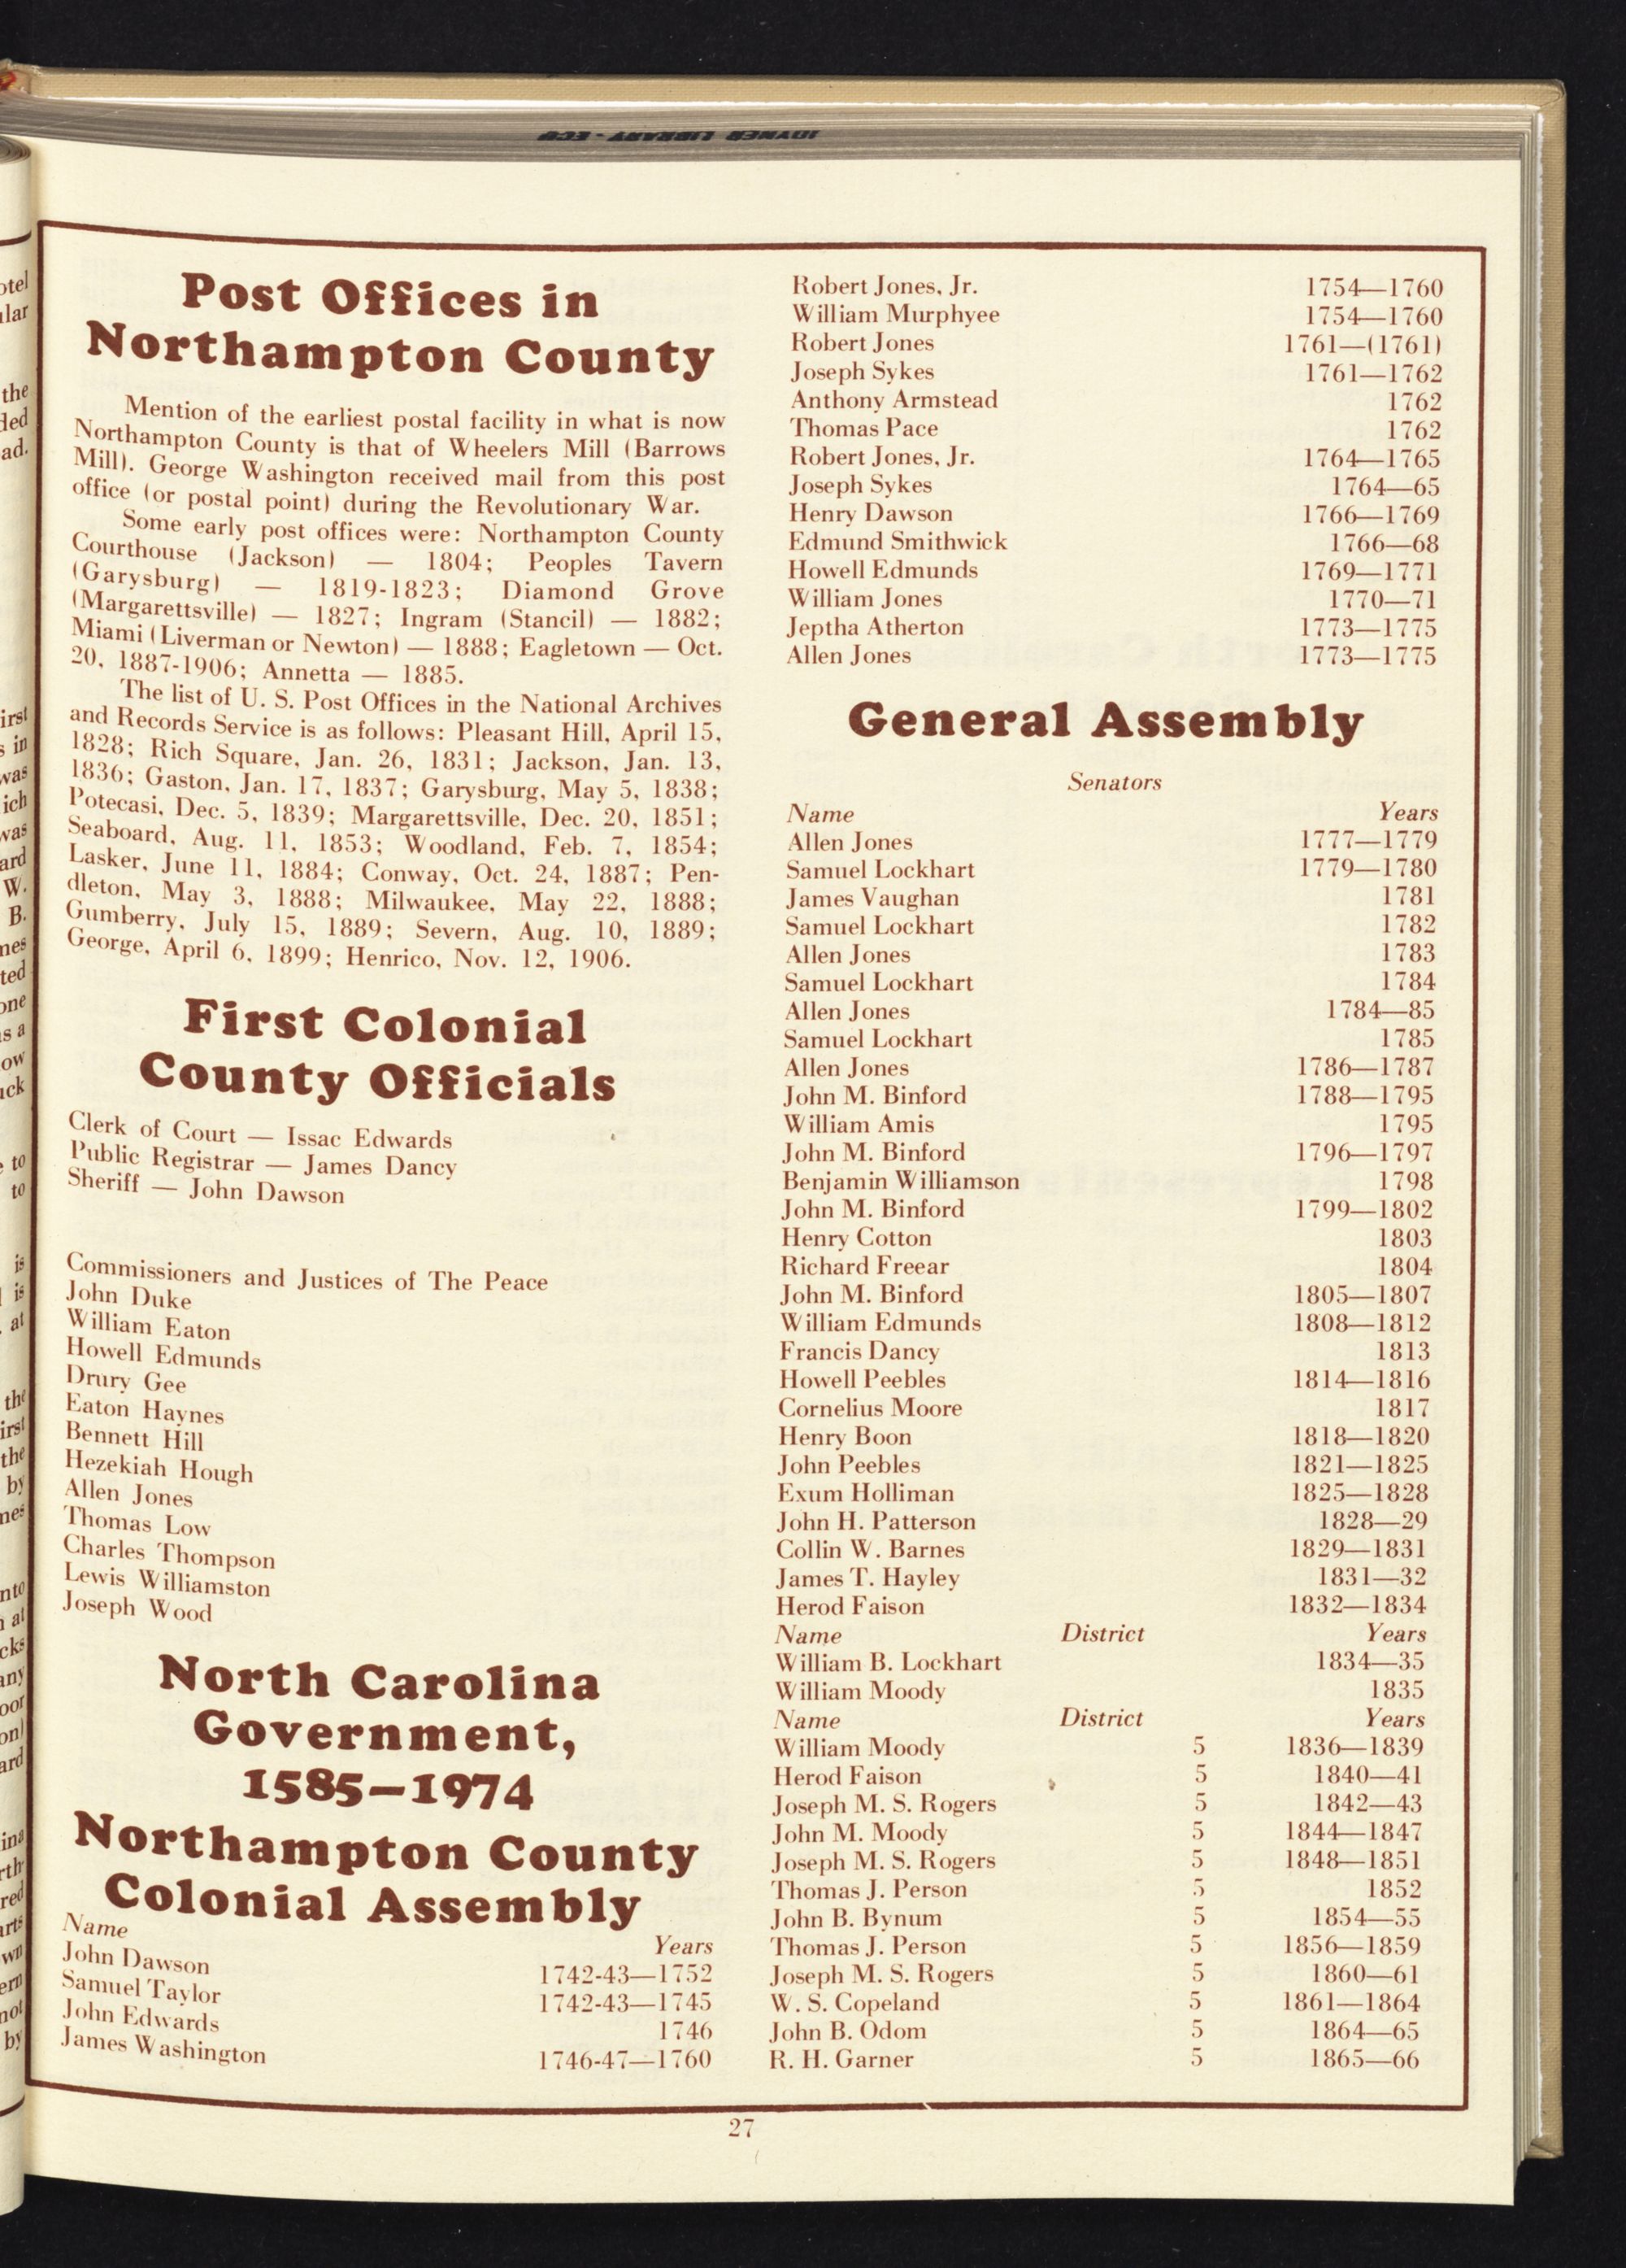 JOYNER LIBRARY - ECU
Post Offices in
Northampton County
Mention of the earliest postal facility in what is now
Northampton County is that of Wheelers Mill (Barrows
Mill). George Washington received mail from this post
office (or postal point) during the Revolutionary War.
Some early post offices were: Northampton County
Courthouse (Jackson) — 1804; Peoples Tavern
(Garysburg) — 1819-1823; Diamond Grove
(Margarettsville) — 1827; Ingram (Stancil) — 1882;
Miami (Liverman or Newton) — 1888; Eagletown — Oct.
20, 1887-1906; Annetta — 1885.
The list of U. S. Post Offices in the National Archives
and Records Service is as follows: Pleasant Hill, April 15,
1828; Rich Square, Jan. 26, 1831; Jackson, Jan. 13,
1836; Gaston, Jan. 17, 1837; Garysburg, May 5, 1838;
Potecasi, Dec. 5, 1839; Margarettsville, Dec. 20, 1851;
Seaboard, Aug. 11, 1853; Woodland, Feb. 7, 1854;
Lasker, June 11, 1884; Conway, Oct. 24, 1887; Pen-
dleton, May 3, 1888; Milwaukee, May 22, 1888;
Gumberry, July 15, 1889; Severn, Aug. 10, 1889;
George, April 6, 1899; Henrico, Nov. 12, 1906.
First Colonial
County Officials
Clerk of Court — Issac Edwards
Public Registrar — James Dancy
Sheriff — John Dawson
Commissioners and Justices of The Peace
John Duke
William Eaton
Howell Edmunds
Drury Gee
Eaton Haynes
Bennett Hill
Hezekiah Hough
Allen Jones
Thomas Low
Charles Thompson
Lewis Williamston
Joseph Wood
North Carolina
Government,
1585—1974
Northampton County
Colonial Assembly
Name Years
John Dawson 1742-43—1752
Samuel Taylor 1742-43—1745
John Edwards 1746
James Washington 1746-47—1760
Robert Jones, Jr. 1754—1760
William Murphyee 1754—1760
Robert Jones 1761—(1761)
Joseph Sykes 1761—1762
Anthony Armstead 1762
Thomas Pace 1762
Robert Jones, Jr. 1764—1765
Joseph Sykes 1764—65
Henry Dawson 1766—1769
Edmund Smithwick 1766—68
Howell Edmunds 1769—1771
William Jones 1770—71
Jeptha Atherton 1773—1775
Allen Jones 1773—1775
General Assembly
Senators
Name Years
Allen Jones 1777—1779
Samuel Lockhart 1779—1780
James Vaughan 1781
Samuel Lockhart 1782
Allen Jones 1783
Samuel Lockhart 1784
Allen Jones 1784—85
Samuel Lockhart 1785
Allen Jones 1786—1787
John M. Binford 1788—1795
William Amis 1795
John M. Binford 1796—1797
Benjamin Williamson 1798
John M. Binford 1799—1802
Henry Cotton 1803
Richard Freear 1804
John M. Binford 1805—1807
William Edmunds 1808—1812
Francis Dancy 1813
Howell Peebles 1814—1816
Cornelius Moore 1817
Henry Boon 1818—1820
John Peebles 1821—1825
Exum Holliman 1825—1828
John H. Patterson 1828—29
Collin W. Barnes 1829—1831
James T. Hayley 1831—32
Herod Faison 1832—1834
Name District Years
William B. Lockhart 1834—35
William Moody 1835
Name District Years
William Moody 5 1836—1839
Herod Faison 5 1840—41
Joseph M. S. Rogers 5 1842—43
John M. Moody 5 1844—1847
Joseph M. S. Rogers 5 1848—1851
Thomas J. Person 5 1852
John B. Bynum 5 1854—55
Thomas J. Person 5 1856—1859
Joseph M. S. Rogers 5 1860—61
W. S. Copeland 5 1861—1864
John B. Odom 5 1864—65
R. H. Garner 5 1865—66
27